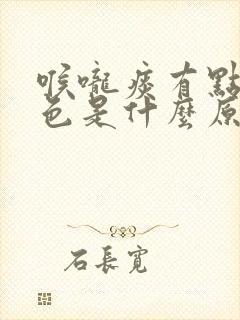 喉嚨痰有點
色是什麼原
石長寬